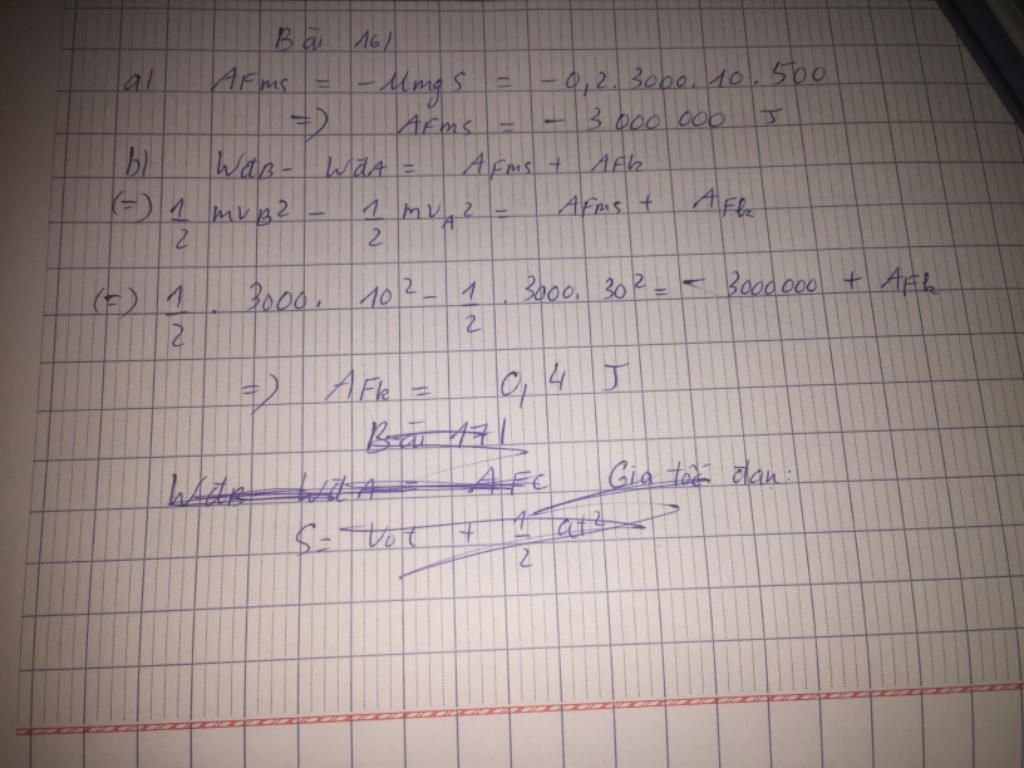 Bài 16)
a) AFms = - MmgS = - 0,2. 3000. 10. 500
=) AFms = - 3 000 000 J
b) WđB - WđA = AFms + AFk
(=) 1/2 mvB² - 1/2 mvA² = AFms + AFk
(=) 1/2 . 3000. 10² - 1/2 . 3000. 30² = - 3000000 + AFk
=) AFk = 0,4 J
Bài 17)
WđB WđA = AFc Gia tốc đạn:
S = v₀t + 1/2 at²